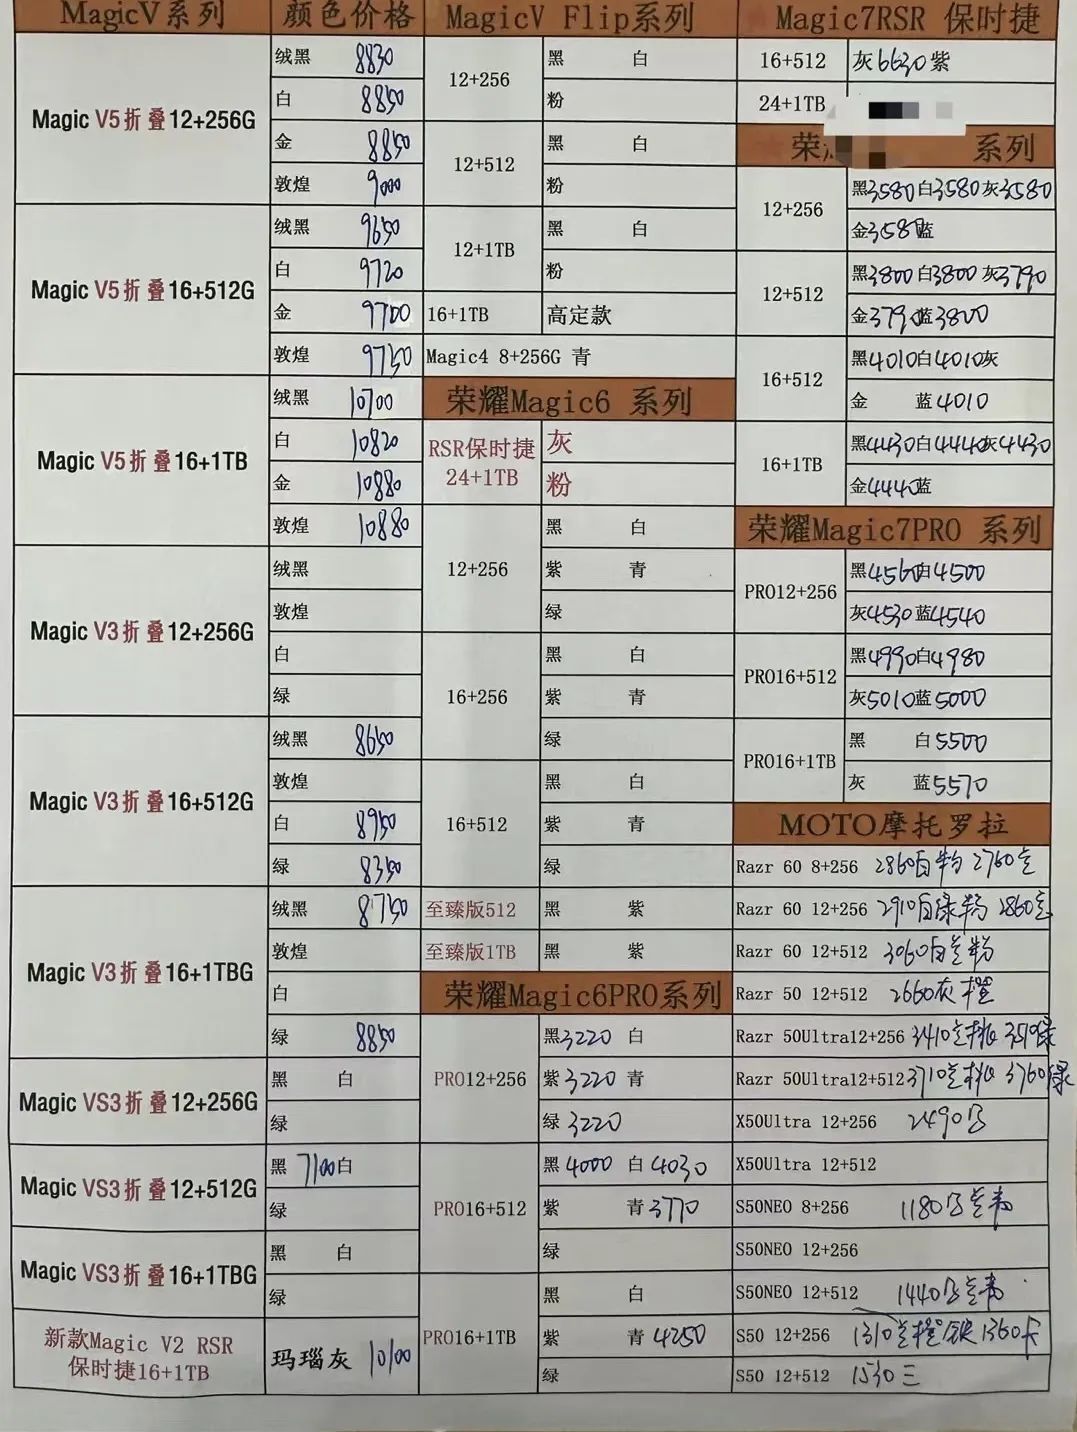 MagicV系列 颜色价格
Magic V5折叠12+256G
绒黑 8830
白 8850
金 8850
敦煌 9000
Magic V5折叠16+512G
绒黑 9650
白 9720
金 9700
敦煌 9750
Magic V5折叠16+1TB
绒黑 10700
白 10820
金 10880
敦煌 10880
Magic V3折叠12+256G
绒黑
敦煌
白
绿
Magic V3折叠16+512G
绒黑 8650
敦煌
白 8950
绿 8350
Magic V3折叠16+1TBG
绒黑 8750
敦煌
白
绿 8850
Magic VS3折叠12+256G
黑 白
绿
Magic VS3折叠12+512G
黑 7100 白
绿
Magic VS3折叠16+1TBG
黑 白
绿
新款Magic V2 RSR
保时捷16+1TB
玛瑙灰 10100
MagicV Flip系列
12+256
黑 白
粉
12+512
黑 白
粉
12+1TB
黑 白
粉
16+1TB 高定款
Magic4 8+256G 青
荣耀Magic6 系列
RSR保时捷
24+1TB
灰
粉
12+256
黑 白
紫 青
绿
16+256
黑 白
紫 青
绿
16+512
黑 白
紫 青
绿
至臻版512 黑 紫
至臻版1TB 黑 紫
荣耀Magic6PRO系列
PRO12+256
黑3220 白
紫3220 青
绿 3220
PRO16+512
黑 4000 白 4030
紫 青3770
绿
PRO16+1TB
黑 白
紫 青 4250
绿
Magic7RSR 保时捷
16+512 灰6630紫
24+1TB
荣 系列
12+256
黑3580白3580灰3580
金3580蓝
12+512
黑3800白3800灰3790
金3790蓝3800
16+512
黑4010白4010灰
金 蓝4010
16+1TB
黑4430白4440灰4430
金4440蓝
荣耀Magic7PRO 系列
PRO12+256
黑4560白4500
灰4530蓝4540
PRO16+512
黑4990白4980
灰5010蓝5000
PRO16+1TB
黑 白5500
灰 蓝5570
MOTO摩托罗拉
Razr 60 8+256 2860白粉 2760
Razr 60 12+256 2910白绿粉 2860
Razr 60 12+512 3060白兰粉
Razr 50 12+512 2660灰橙
Razr 50Ultra12+256 3410兰桃 绿
Razr 50Ultra12+512 3710兰桃 3760绿
X50Ultra 12+256 2490
X50Ultra 12+512
S50NEO 8+256 1180
S50NEO 12+256
S50NEO 12+512 1440
S50 12+256 1310兰橙 1360
S50 12+512 1530三